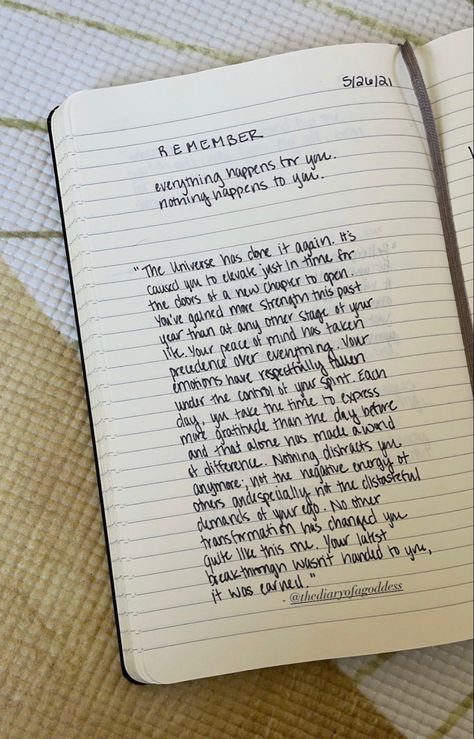 5/26/21
REMEMBER
everything happens for you.
nothing happens to you.
"The Universe has done it again. It's
caused you to elevate just in time for
the doors of a new chapter to open.
You've gained more strength this past
year than at any other stage of your
life. Your peace of mind has taken
precedence over everything. Your
emotions have respectfully fallen
under the control of your spirit. Each
day, you take the time to express
more gratitude than the day before
and that alone has made a world
of difference. Nothing distracts you
anymore; not the negative energy of
others and especially not the distasteful
demands of your ego. No other
transformation has changed you
quite like this me. Your latest
breakthrough wasn't handed to you,
it was earned."
- @thediaryofagoddess